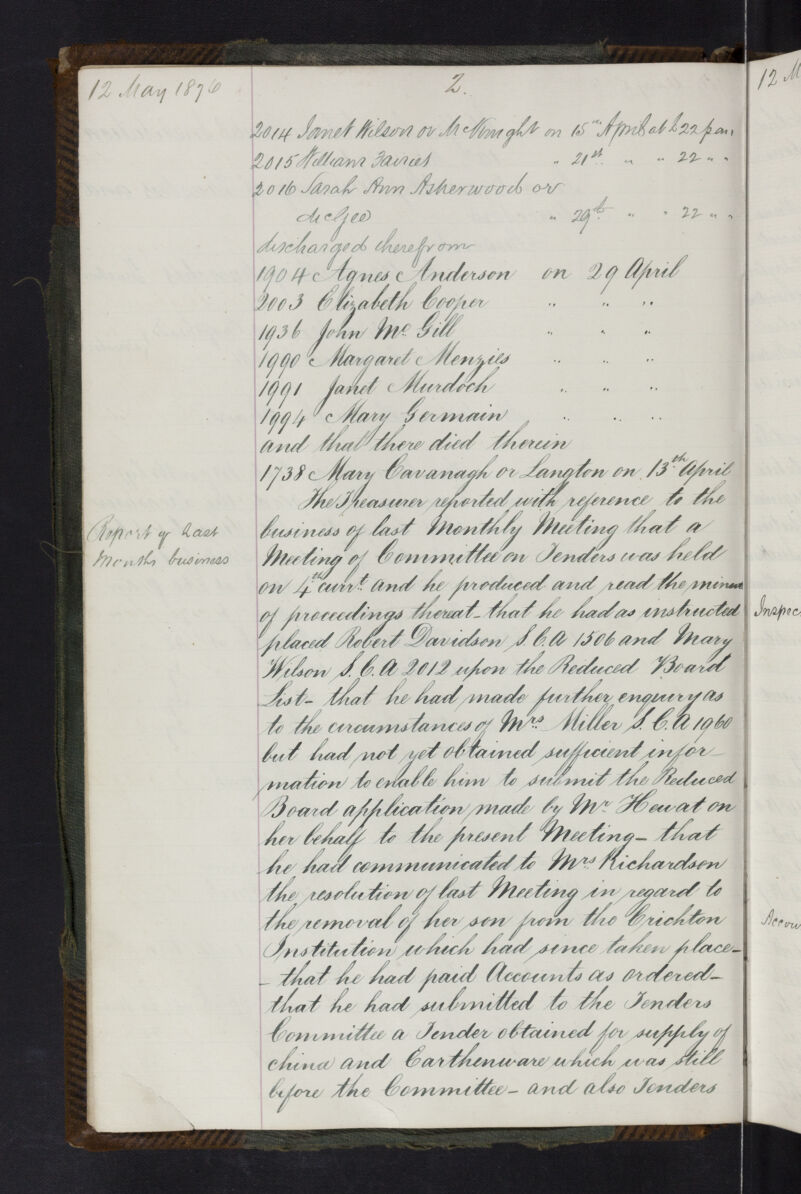 12 May 1876
2.
2014 Janet Wilson or McKnight on 15th April at £22 p an.
2015 William Fairies " 21st " " 22 " "
2016 Sarah Ann Asherwood or
McGee " 29th " " 22 " "
discharged therefrom
1904 Agnes Anderson on 29 April
2003 Elizabeth Cooper " " "
1936 John Mc Gill " " "
1990 Margaret Menzies " " "
1991 Janet Murdoch " " "
1994 Mary Germain " " "
and that there died therein
1738 Mary Cavanagh or Langton on 13th April
The Treasurer reported with reference to the
Report of Last
Months business
business of last Monthly Meeting that a
Meeting of Committee on Tenders was held
on 4th currt. and he produced and read the minute
of proceedings thereat - that he had as instructed
placed Robert Davidson S.C.A 1506 and Mary
Wilson S.C.A 2012 upon the Reduced Board
List - that he had made further enquiry as
to the circumstances of Mrs. Miller S.C.A 1960
but had not yet obtained sufficient infor-
mation to enable him to submit the Reduced
Board application made by Mr Hewat on
her behalf to the present Meeting - that
he had communicated to Mrs Richardson
the resolution of last Meeting in regard to
the removal of her son from the Crichton
Institution which had since taken place -
- that he had paid Accounts as ordered -
that he had submitted to the Tenders
Committee a Tender obtained for supply of
china and Earthenware which was still
before the Committee - and also Tenders
12 M
Inspec
Accou